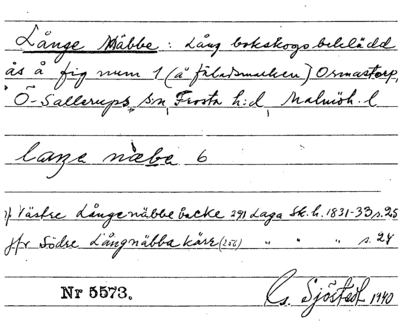 Långe Näbbe: Lång bokskogsbeklädd
ås å fig num 1 (å fäladsmarken) Ormastorp,
Ö-Sallerups sn, Frosta h:d, Malmöh. l
laŋe næbe 6
jf Västre Långenäbbe backe 291 Laga Sk. h. 1831-33 s. 25
jfr Södre Långnäbba kärr (256) " " " s. 24
Nr 5573.
Sjöstedt 1940